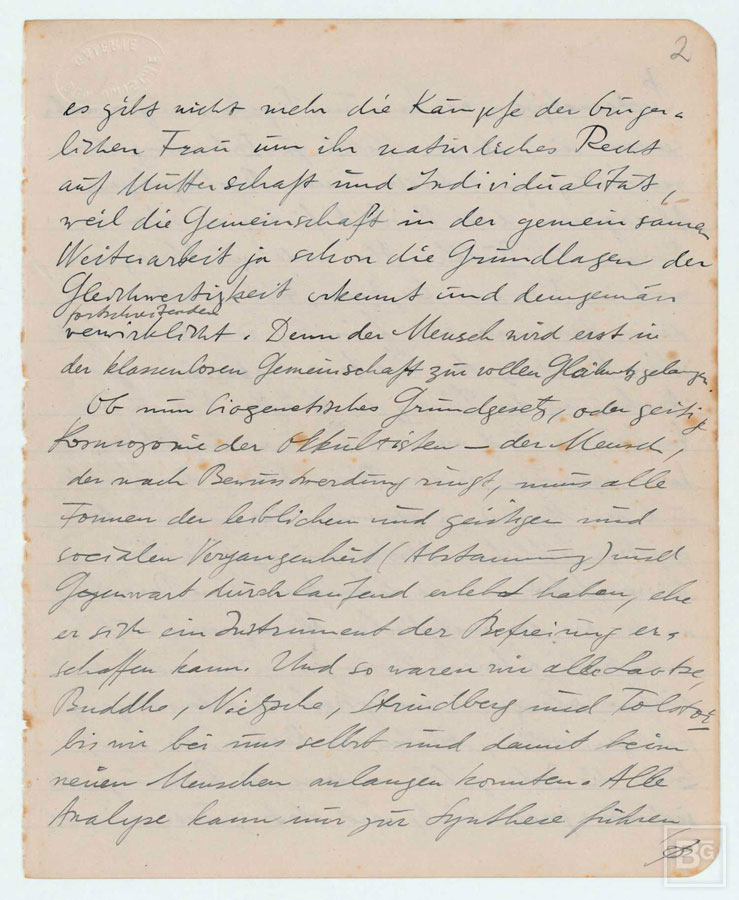 2
es gibt nicht mehr die Kämpfe der bürger-
lichen Frau um ihr natürliches Recht
auf Mutterschaft und Individualität,
weil die Gemeinschaft in der gemeinsamen
Weiterarbeit ja schon die Grundlagen der
Gleichwertigkeit erkennt und demgemäss
fortschreitender
verwirklicht. Denn der Mensch wird erst in
der klassenlosen Gemeinschaft zur vollen gelangen.
Ob nun biogenetisches Grundgesetz, oder geistige
Kosmogonie der Okkultisten – der Mensch,
der nach Bewusstwerdung ringt, muss alle
Formen der leiblichen und geistigen und
socialen Vergangenheit (Abstammung) und
Gegenwart durchlaufend erlebt haben, ehe
er sich ein Instrument der Befreiung er-
schaffen kann. Und so waren wir alle Laotse,
Buddha, Nietzsche, Strindberg und Tolstoi
bis wir bei uns selbst und damit beim
neuen Menschen anlangen konnten. Alle
Analyse kann nur zur Synthese führen
BG